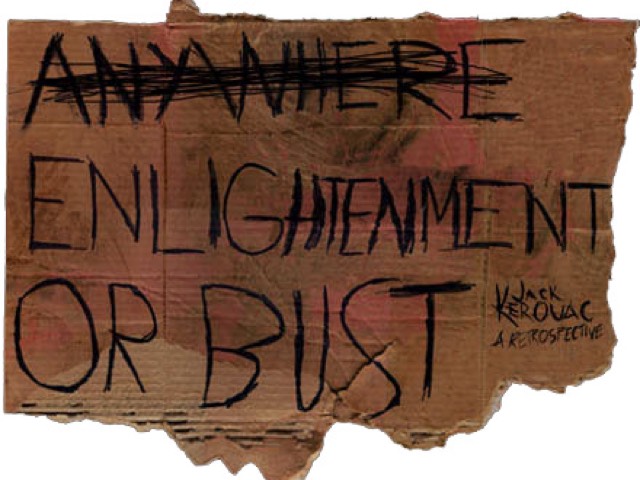 ANYWHERE
ENLIGHTENMENT
OR BUST
JACK
KEROUAC
A RETROSPECTIVE